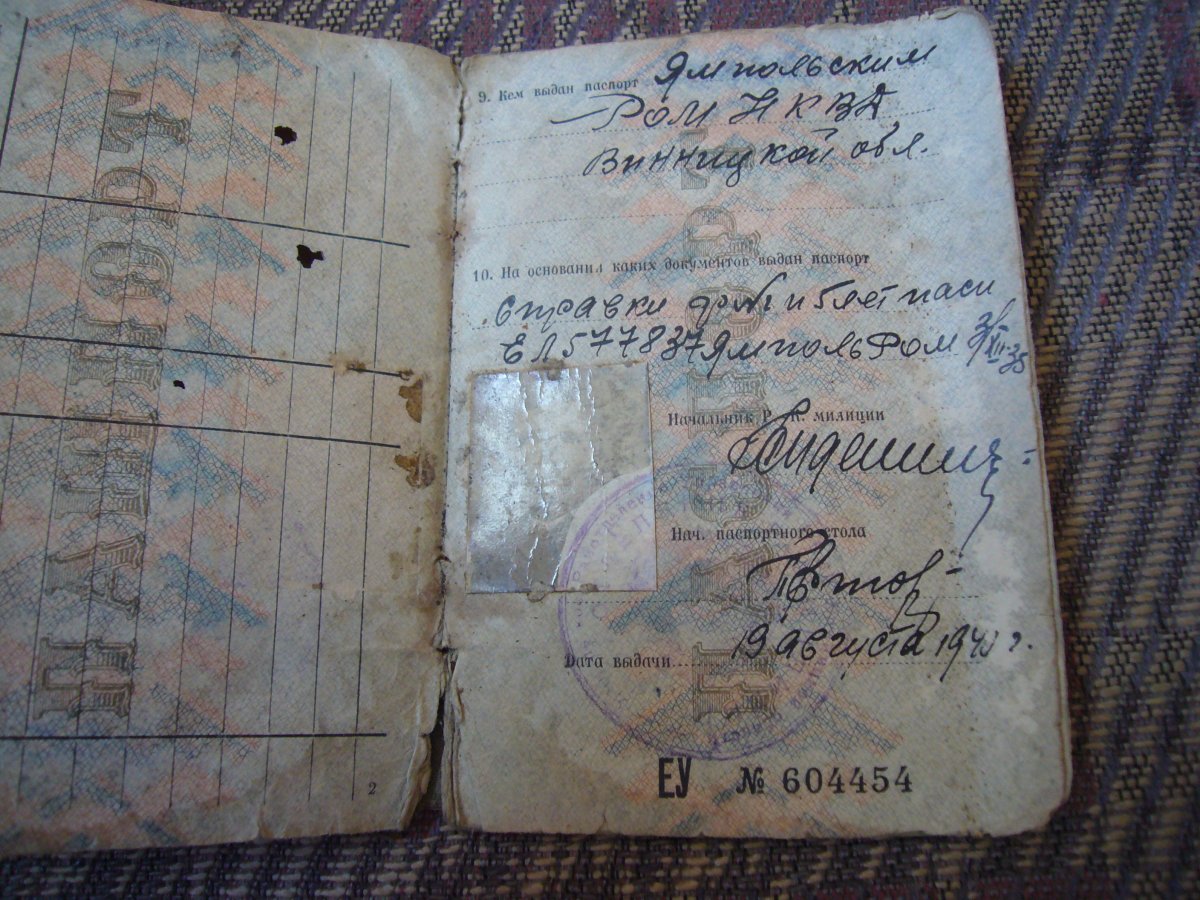 ПАСПОРТ
2
9. Кем выдан паспорт Ямпольским
РОМ НКВД
Винницкой обл.
10. На основании каких документов выдан паспорт
Справки ф№1 и 5 лет пасп
ЕЛ 577837 Ямполь РОМ
Начальник Р. К. милиции
Нач. паспортного стола
Дата выдачи 19 августа 194 г.
ПАСПОРТ
ЕУ № 604454